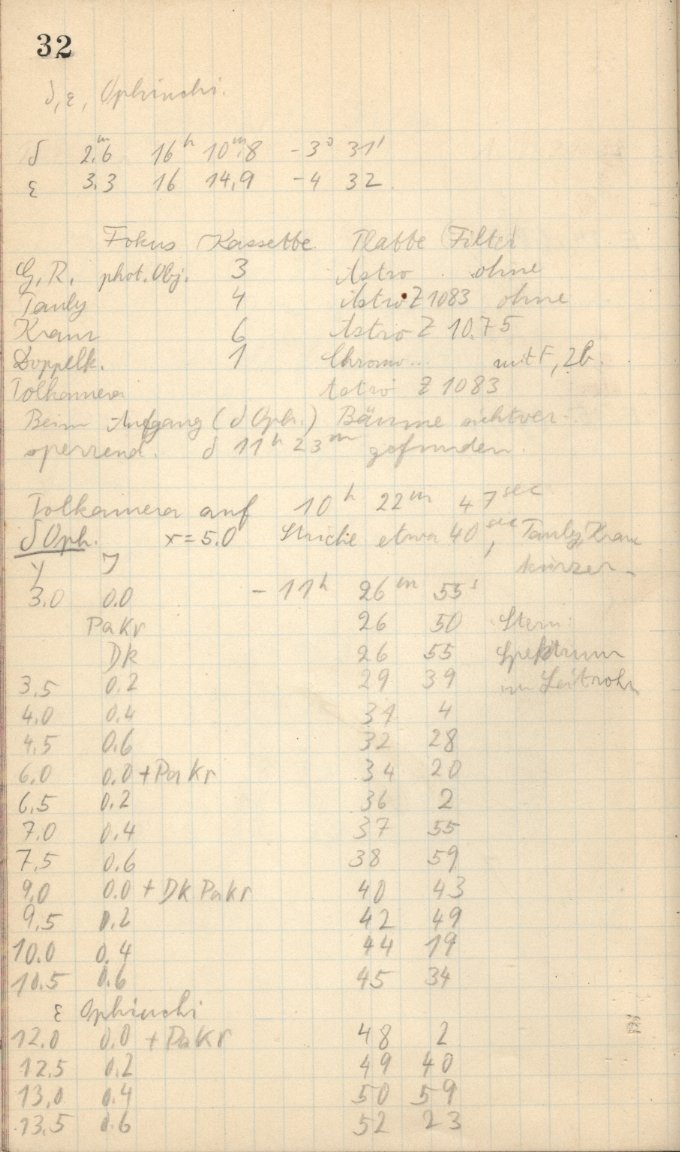 32
δ, ε, Ophiuchi.
δ 2,ᵐ6 16ʰ 10ᵐ,8 -3° 31'
ε 3.3 16 14,9 -4 32
Fokus Kassette Platte Filter
G. R. phot. Obj. 3 Astro ohne
Tauly 4 Astro Z 1083 ohne
Kranz 6 Astro Z 10.75
Doppelk. 1 Chromo.. mit F, 2b.
Polkamera Astro Z 1083
Beim Aufgang (δ Oph.) Bäume sichtver-
sperrend. δ 11ʰ 23ᵐ gefunden.
Polkamera auf 10ʰ 22ᵐ 47ˢᵉᶜ
δ Oph. x=5.0 Striche etwa 40ˢᵉᶜ, Tauly Kranz
kürzer
3.0 0.0 - 11ʰ 26ᵐ 55ˢ
PaKr 26 50 Stern
DK 26 55 Spektrum
3,5 0.2 29 39 im Leitrohr
4,0 0.4 31 4
4,5 0.6 32 28
6,0 0.0 + PaKr 34 20
6,5 0.2 36 2
7.0 0.4 37 55
7,5 0.6 38 59
9,0 0.0 + DK PaKr 40 43
9,5 0.2 42 49
10.0 0.4 44 19
10.5 0.6 45 34
ε Ophiuchi
12.0 0.0 + PaKr 48 2
12,5 0.2 49 40
13,0 0.4 50 59
13,5 0.6 52 23